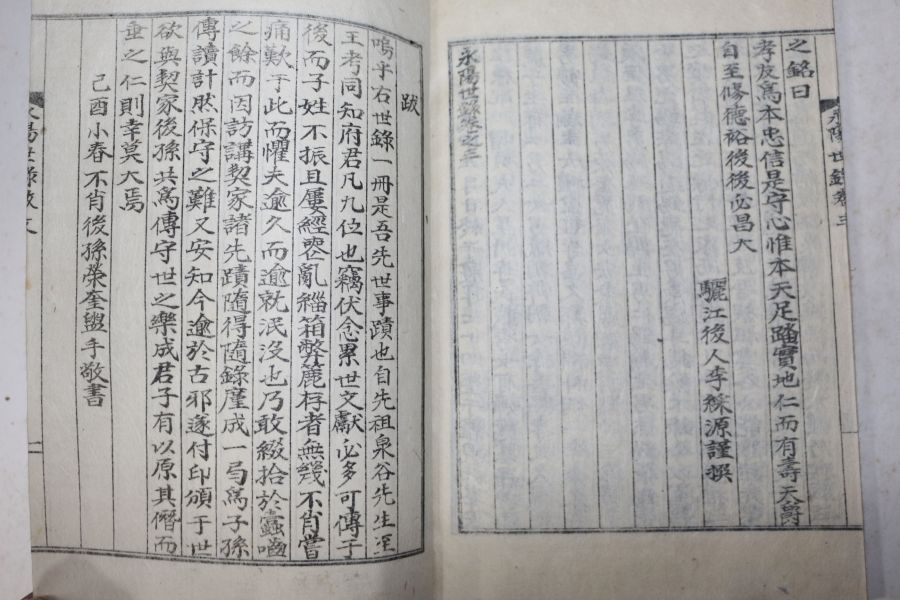 永陽世錄卷三
之銘曰
孝友爲本忠信是守心惟本天足踏實地仁而有壽天爵
自至修德裕後後必昌大
驪江後人李綵源謹撰
永陽世錄卷之三
跋
嗚乎右世錄一冊是吾先世事蹟也自先祖泉谷先生至
王考同知府君凡九位也竊伏念累世文獻必多可傳于
後而子姓不振且屢經喪亂緇箱弊簏存者無幾不肖嘗
痛歎于此而懼夫逾久而逾就泯沒也乃敢綴拾於蠹嚙
之餘而因訪講契家諸先蹟隨得隨錄厪成一弓爲子孫
傳讀計然保守之難又安知今逾於古邪遂付印頒于世
欲與契家後孫共爲傳守世之樂成君子有以原其僭而
垂之仁則幸莫大焉
己酉小春不肖後孫榮奎盥手敬書
永陽世錄跋文
二